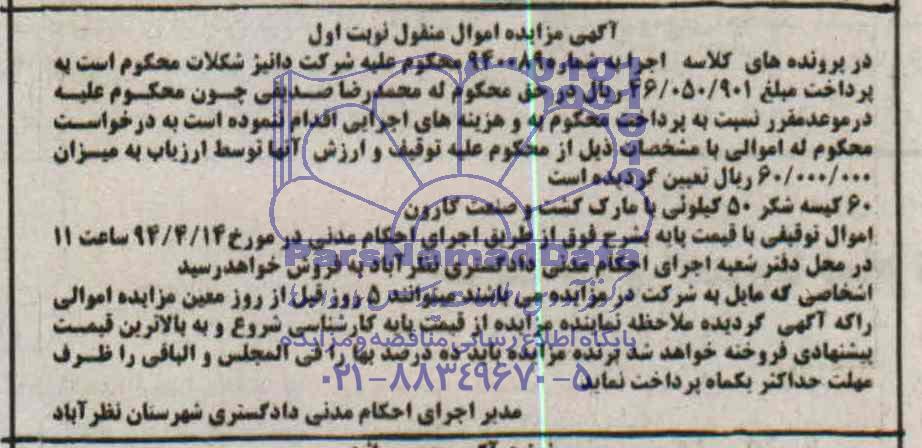 آگهی مزایده اموال منقول نوبت اول
در پرونده های کلاسه اجرا به شماره ۹۴۰۰۸۹ محکوم علیه شرکت دانیز شکلات محکوم است به
پرداخت مبلغ ۲۶/۰۵۰/۹۰۱ ریال در حق محکوم له محمدرضا صدیقی چون محکوم علیه
درموعدمقرر نسبت به پرداخت محکوم به و هزینه های اجرایی اقدام ننموده است به درخواست
محکوم له اموالی با مشخصات ذیل از محکوم علیه توقیف و ارزش آنها توسط ارزیاب به میزان
۶۰/۰۰۰/۰۰۰ ریال تعیین گردیده است
۶۰ کیسه شکر ۵۰ کیلوئی با مارک کشت و صنعت کارون
اموال توقیفی با قیمت پایه بشرح فوق از طریق اجرای احکام مدنی در مورخ ۹۴/۴/۱۴ ساعت ۱۱
در محل دفتر شعبه اجرای احکام مدنی دادگستری نظرآباد به فروش خواهدرسید
ParsNamadData
اشخاصی که مایل به شرکت در مزایده می باشند میتوانند ۵ روز قبل از روز معین مزایده اموالی
راکه آگهی گردیده ملاحظه نمایند مزایده از قیمت پایه کارشناسی شروع و به بالاترین قیمت
پایگاه اطلاع رسانی مناقصه و مزایده
پیشنهادی فروخته خواهد شد برنده مزایده باید ده درصد بها را فی المجلس و الباقی را ظرف
مهلت حداکثر یکماه پرداخت نماید
۰۲۱-۸۸۳۴۹۶۷۰-۵
مدیر اجرای احکام مدنی دادگستری شهرستان نظرآباد